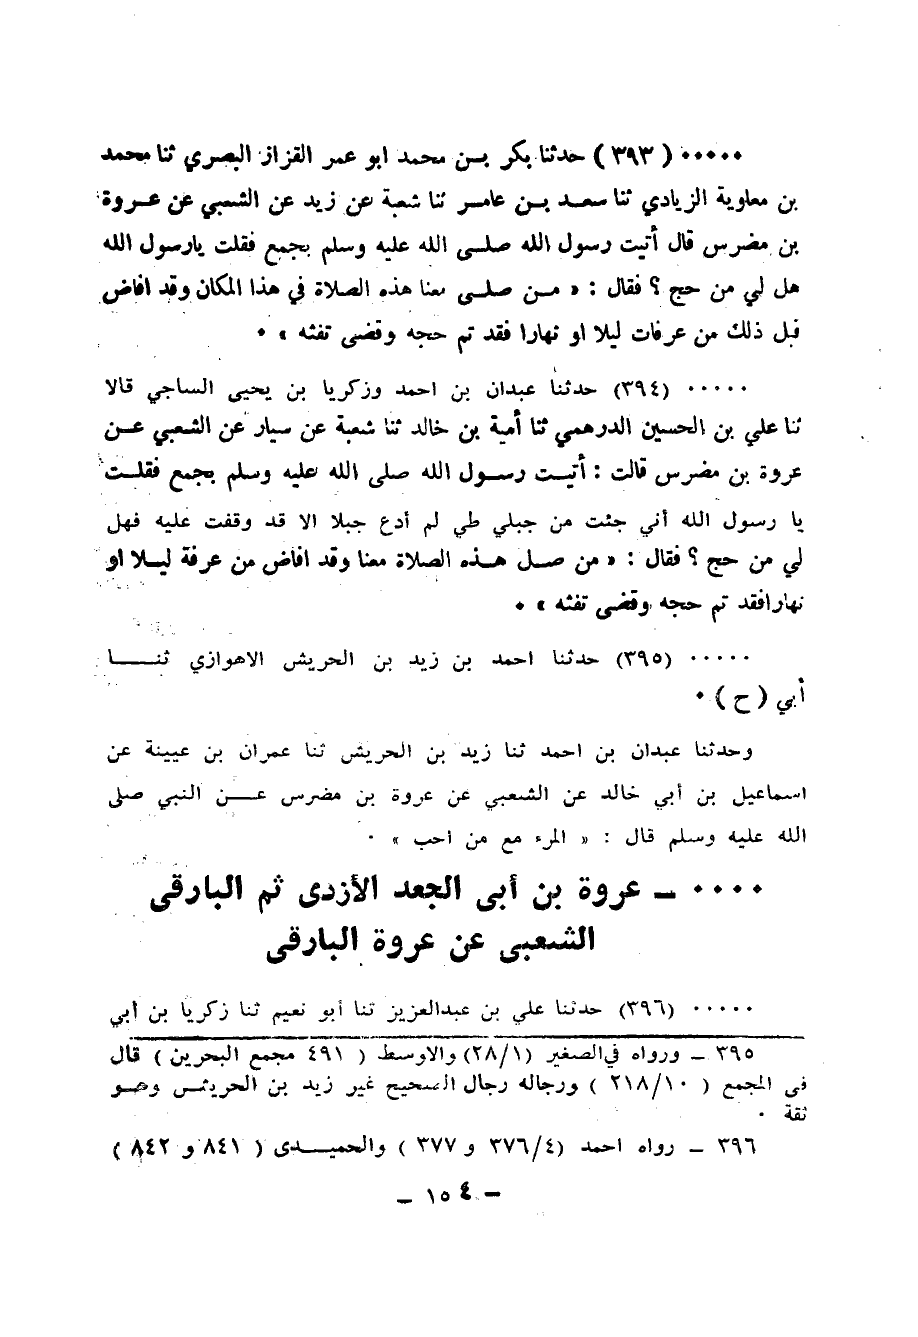 ٠٠٠٠٠ ( ٣٩٣ ) حدثنا بكر بـن محمد ابو عمر القزاز البصري ثنا محمد
بن معاوية الزيادي ثنا سعـد بـن عامر ثنا شعبة عن زيد عن الشعبي عن عـروة
بن مضرس قال أتيت رسول الله صلـى الله عليه وسلم بجمع فقلت يارسول الله
هل لي من حج ؟ فقال : « مـن صلـى معنا هذه الصلاة في هذا المكان وقد افاض
قبل ذلك من عرفات ليلا او نهارا فقد تم حجه وقضى تفثه » ٠
٠٠٠٠٠ (٣٩٤) حدثنا عبدان بن احمد وزكريا بن يحيى الساجي قالا
ثنا علي بن الحسين الدرهمي ثنا أمية بن خالد ثنا شعبة عن سيار عن الشعبي عـن
عروة بن مضرس قالت : أتيـت رسـول الله صلى الله عليه وسلم بجمع فقلـت
يا رسول الله أني جئت من جبلي طي لم أدع جبلا الا قد وقفت عليه فهل
لي من حج ؟ فقال : « من صـل هـذه الصلاة معنا وقد افاض من عرفة ليـلا او
نهارافقد تم حجه وقضى تفثه » ٠
٠٠٠٠٠ (٣٩٥) حدثنا احمد بن زيد بن الحريش الاهوازي ثنـــا
أبي (ح) ٠
وحدثنا عبدان بن احمد ثنا زيد بن الحريش ثنا عمران بن عيينة عن
اسماعيل بن أبي خالد عن الشعبي عن عروة بن مضرس عـــن النبي صلى
الله عليه وسلم قال : « المرء مع من احب » ٠
٠٠٠٠ ـ عروة بن أبى الجعد الأزدى ثم البارقى
الشعبى عن عروة البارقى
٠٠٠٠٠ (٣٩٦) حدثنا علي بن عبدالعزيز ثنا أبو نعيم ثنا زكريا بن أبي
٣٩٥ ـ ورواه في الصغير (٢٨/١) والاوسط ( ٤٩١ مجمع البحرين ) قال
فى المجمع ( ٢١٨/١٠ ) ورجاله رجال الصحيح غير زيد بن الحريش وهـو
ثقة ٠
٣٩٦ ـ رواه احمد (٣٧٦/٤ و ٣٧٧ ) والحميـــدى ( ٨٤١ و ٨٤٢ )
ـ ١٥٤ ـ